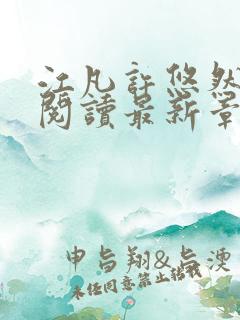 江凡許悠然
閱讀最新章
申与翔&与湮
未经同意禁止转载